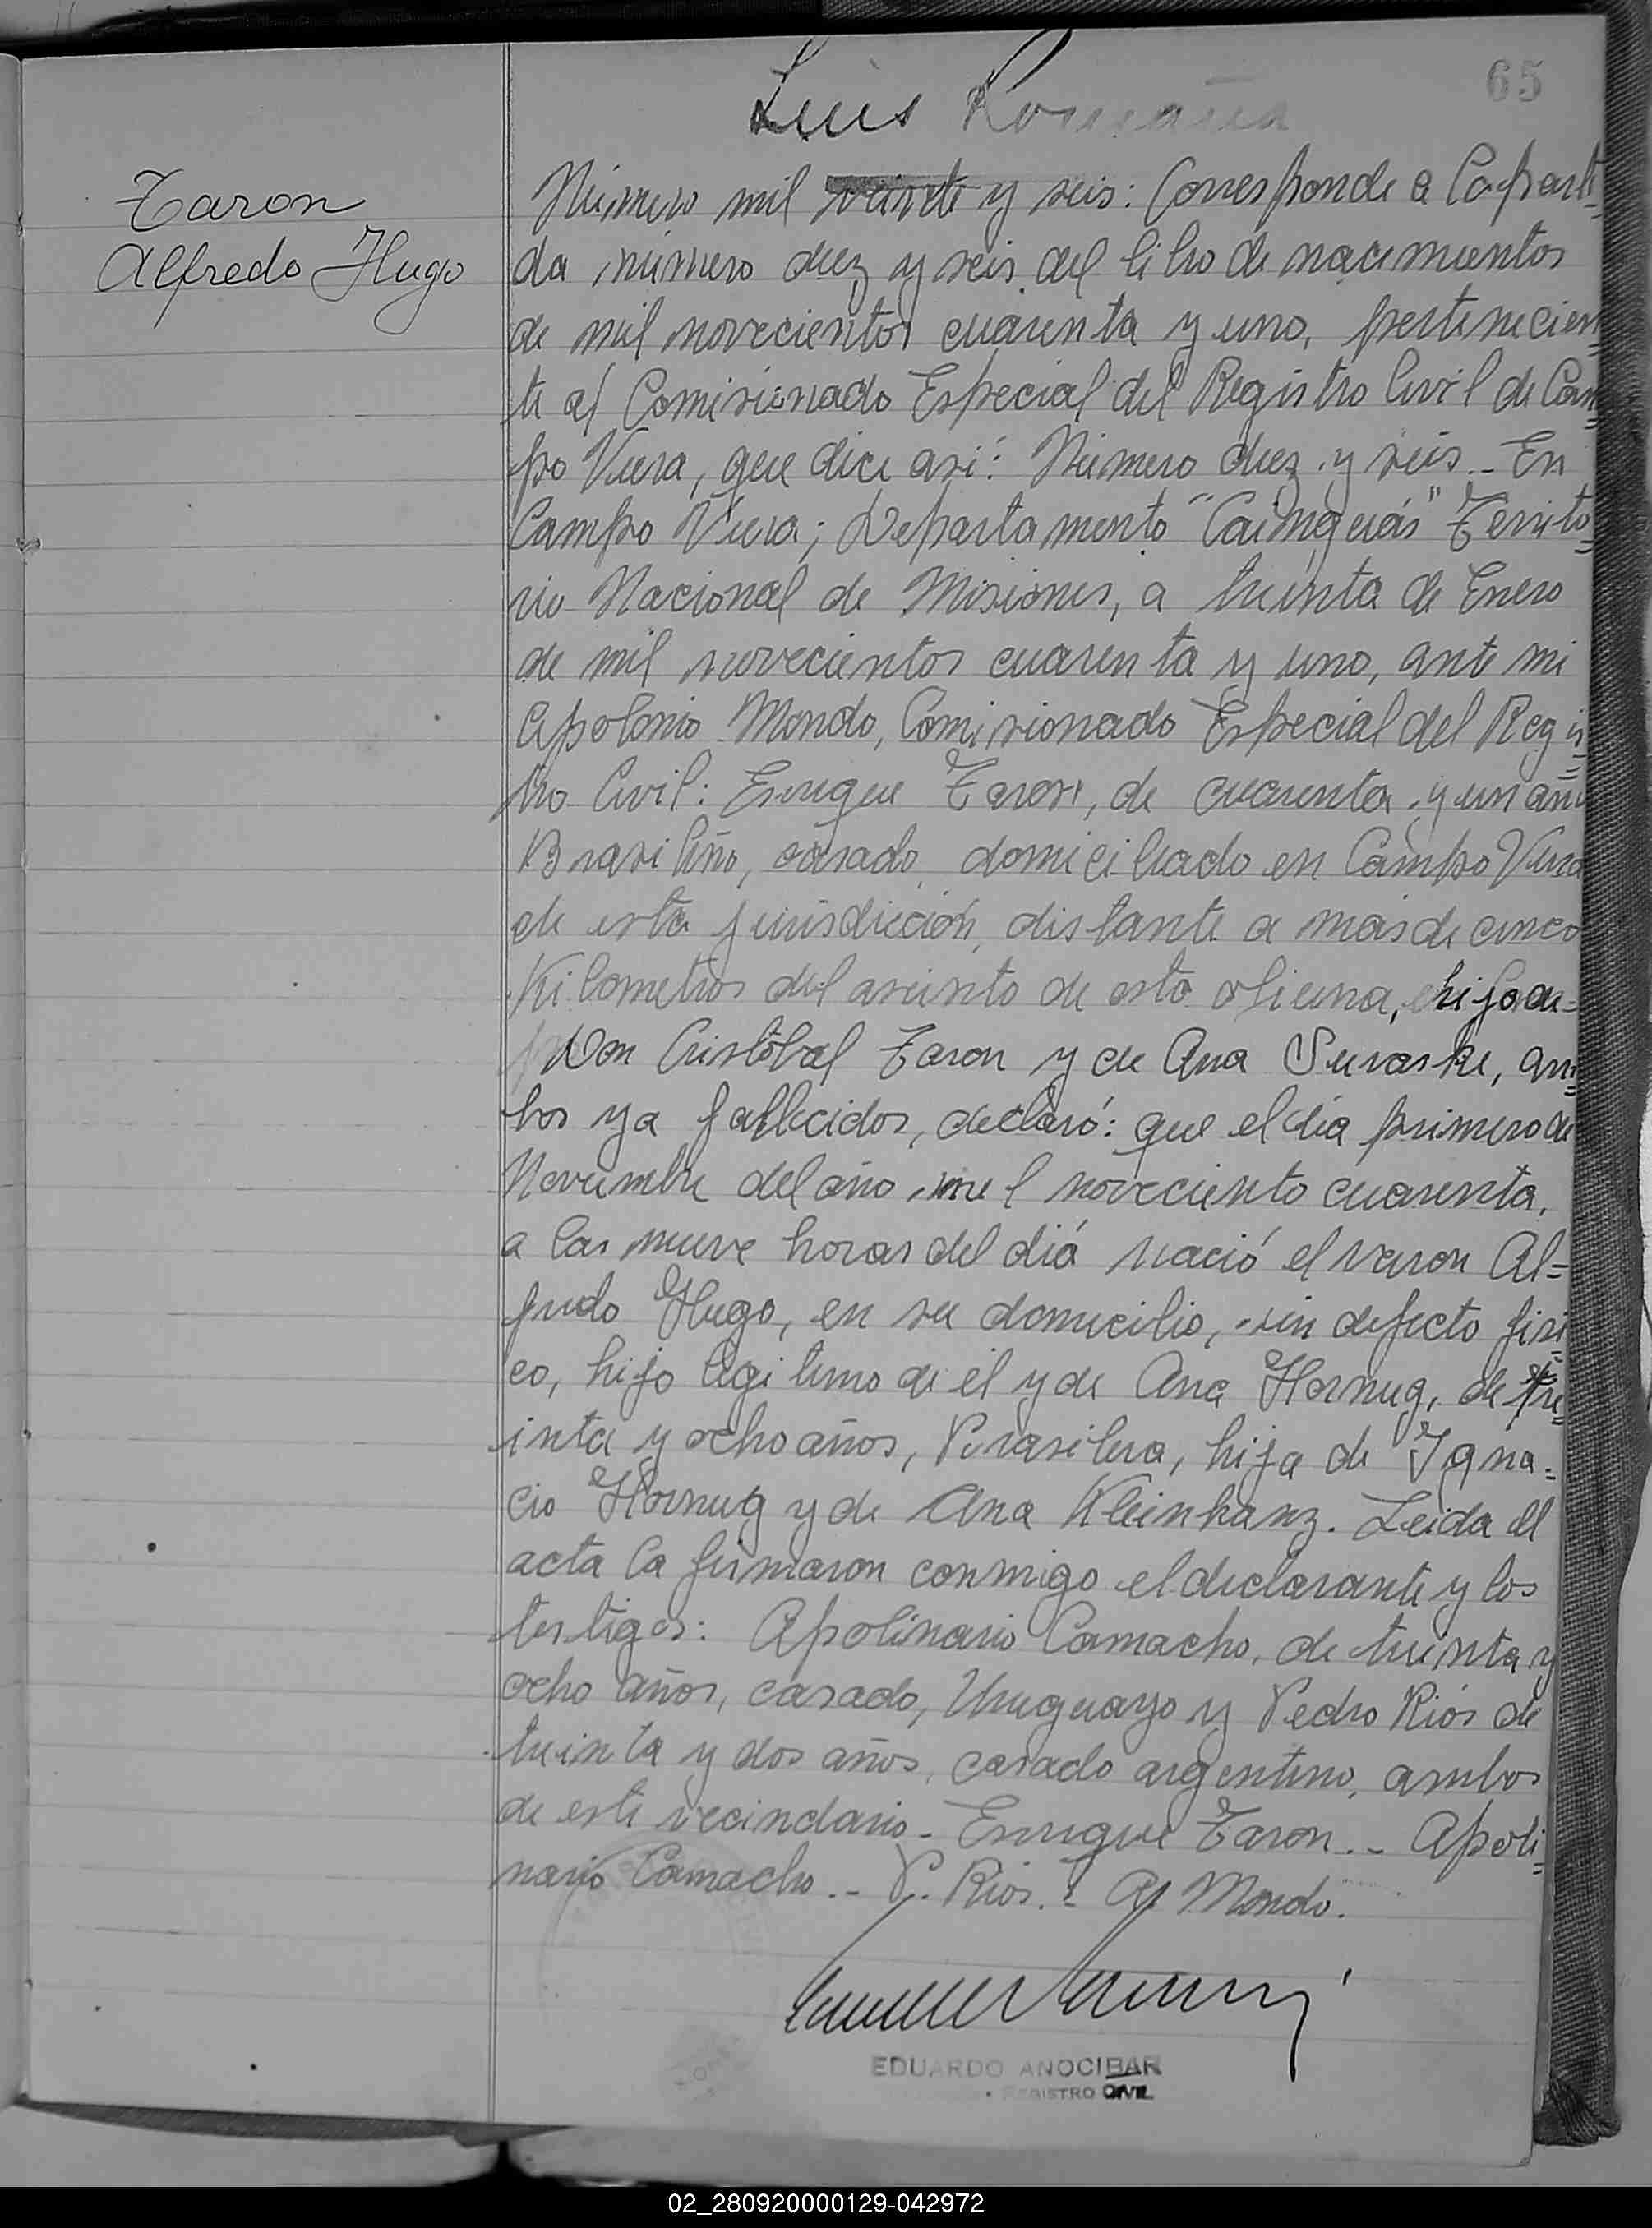 65
Luis Romaña
Taron
Alfredo Hugo
Número mil veinte y seis: Corresponde a la parti-
da número diez y seis del libro de nacimientos
de mil novecientos cuarenta y uno, pertenecien=
te al Comisionado Especial del Registro Civil de Cam=
po Viera, que dice así: Número diez y seis.- En
Campo Viera; Departamento "Cainguás" Territo=
rio Nacional de Misiones, a treinta de Enero
de mil novecientos cuarenta y uno, ante mi
Apolonio Mondo, Comisionado Especial del Regis=
tro Civil: Enrique Taron, de cuarenta y un años
Brasileño, casado, domiciliado en Campo Viera
de esta jurisdicción, distante a mas de cinco
Kilometros del asiento de esta oficina, hijo de=
Don Cristóbal Taron y de Ana Suraske, am=
bos ya fallecidos, declaró: que el día primero de
Noviembre del año mil noveciento cuarenta,
a las nueve horas del diá nació el varon Al=
fredo Hugo, en su domicilio, sin defecto fisi=
co, hijo legitimo de él y de Ana Hornug, de tre=
inta y ocho años, Brasilera, hija de Igna=
cio Hornug y de Ana Kleinhanz. Leida el
acta la firmaron conmigo el declarante y los
testigos: Apolinario Camacho, de treinta y
ocho años, casado, Uruguayo y Pedro Riós de
treinta y dos años, casado argentino, ambos
de este vecindario.- Enrique Taron.- Apoli=
nario Camacho.- P. Rios.- Ap. Mondo.
EDUARDO ANOCIBAR
REGISTRO CIVIL
02_280920000129-042972